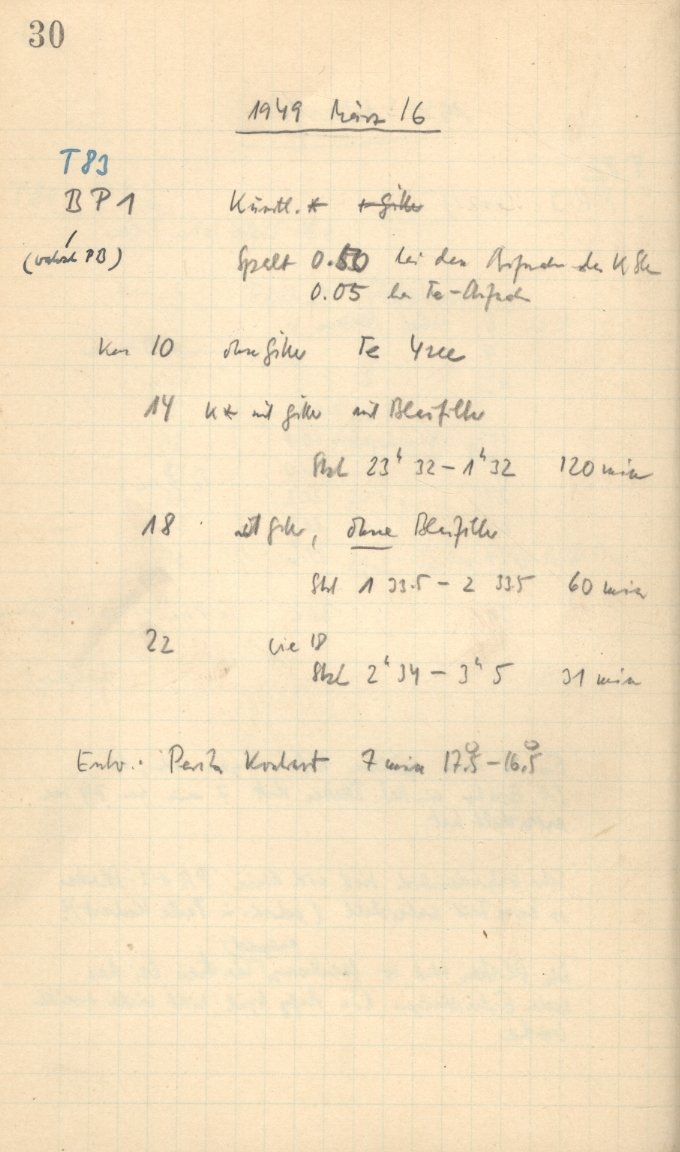 30
1949 März 16
T83
BP1 Künstl. * * Gitter
( PB) Spalt 0.50 bei den Aufnahmen des K Ster
0.05 bei Te-Aufnahm
Kas 10 ohne Gitter Te 4 sec
14 K* mit Gitter mit Blaufilter
Stzl 23h 32 – 1h 32 120 min
18 mit Gitter, ohne Blaufilter
Stzl 1 33.5 – 2 33.5 60 min
22 wie 18
Stzl 2h 34 – 3h 5 31 min
Entw.: Perutz Kontrast 7 min 17.5° – 16.5°